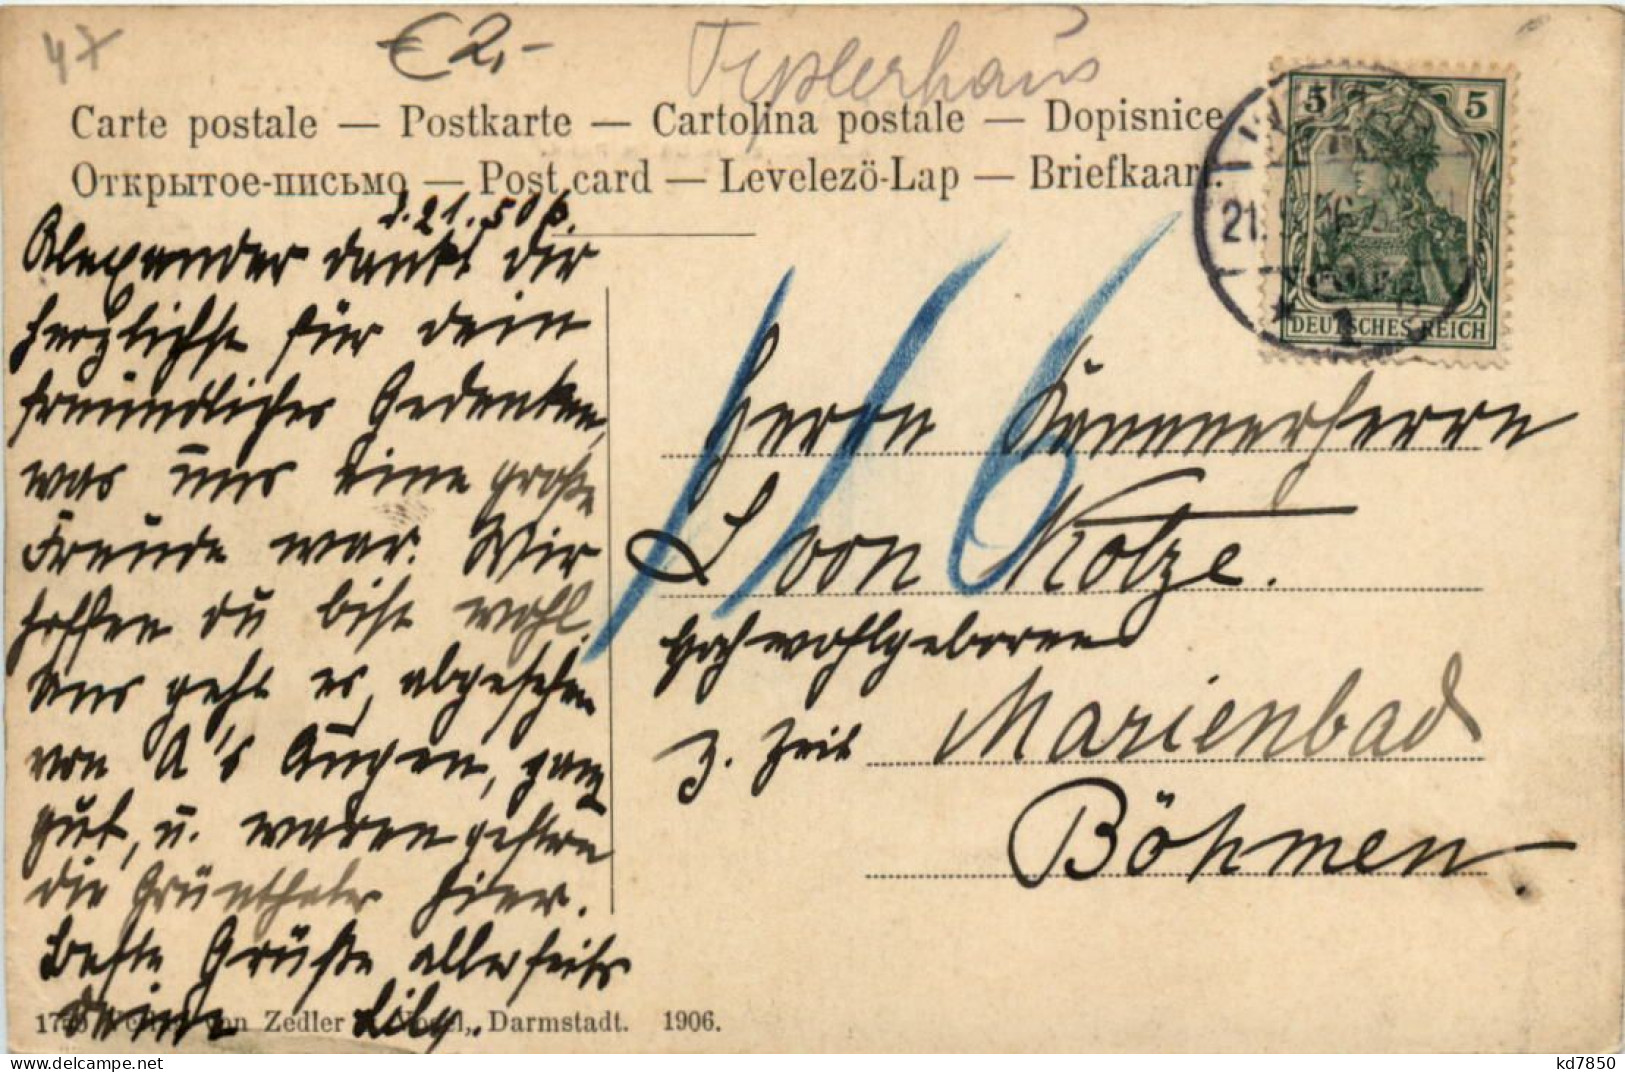 47
€ 2,-
Carte postale — Postkarte — Cartolina postale — Dopisnice
Открытое-письмо — Post card — Levelezö-Lap — Briefkaart.
5 5
DEUTSCHES REICH
d. 21. 5 06.
Alexander dankt dir
herzlichst für dein
freundliches Gedenken,
was uns eine große
Freude war. Wir
hoffen du bist wohl.
Uns geht es, abgesehen
von A's Augen, ganz
gut, u. waren gestern
die Grünthaler hier.
Beste Grüße allerseits
deine Lily.
116
Herrn Kammerherrn
L von Kotze.
Hochwohlgeboren
z. Zeit Marienbad
Böhmen.
von Zedler & Vogel, Darmstadt. 1906.
kd7850